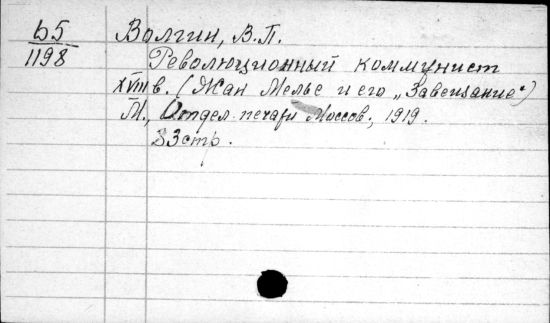 Б5
1198
Волгин, В.П.
Революционный коммунист
XVIII в. (Жан Мелье и его „Завещание“)
М., Отдел печати Моссов., 1919.
83 стр.